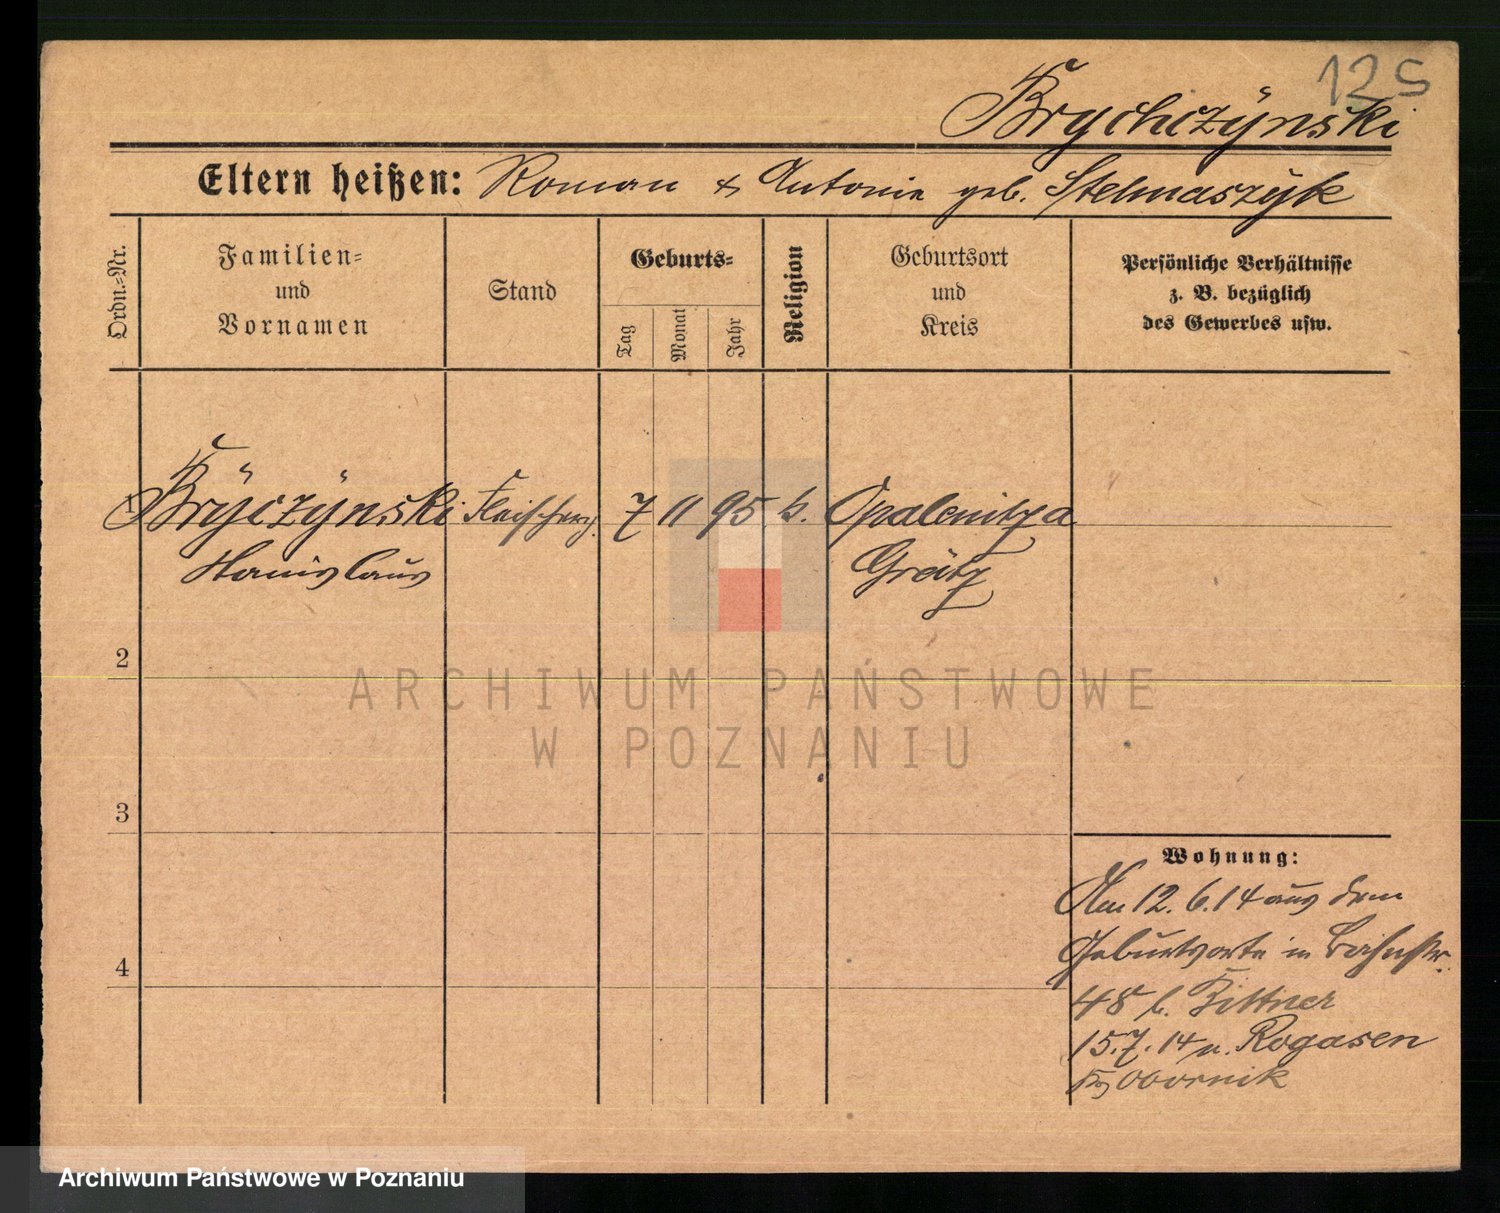 125
Brychczÿnski
Eltern heißen: Roman & Antonie geb. Stelmaszÿk
Ordn.-Nr.
Familien-
und
Vornamen
Stand
Geburts-
Tag
Monat
Jahr
Religion
Geburtsort
und
Kreis
Persönliche Verhältnisse
z. B. bezüglich
des Gewerbes usw.
1 Brÿczÿnski Fleischerg. 7 11 95 k. Opalenitza
Stanislaus Grätz
2
ARCHIWUM PAŃSTWOWE
W POZNANIU
3
4
Wohnung:
Am 12.6.14 aus dem
Geburtsorte in Bahnstr.
48 b. Bittner
15.7.14 n. Rogasen
Obornik
Archiwum Państwowe w Poznaniu